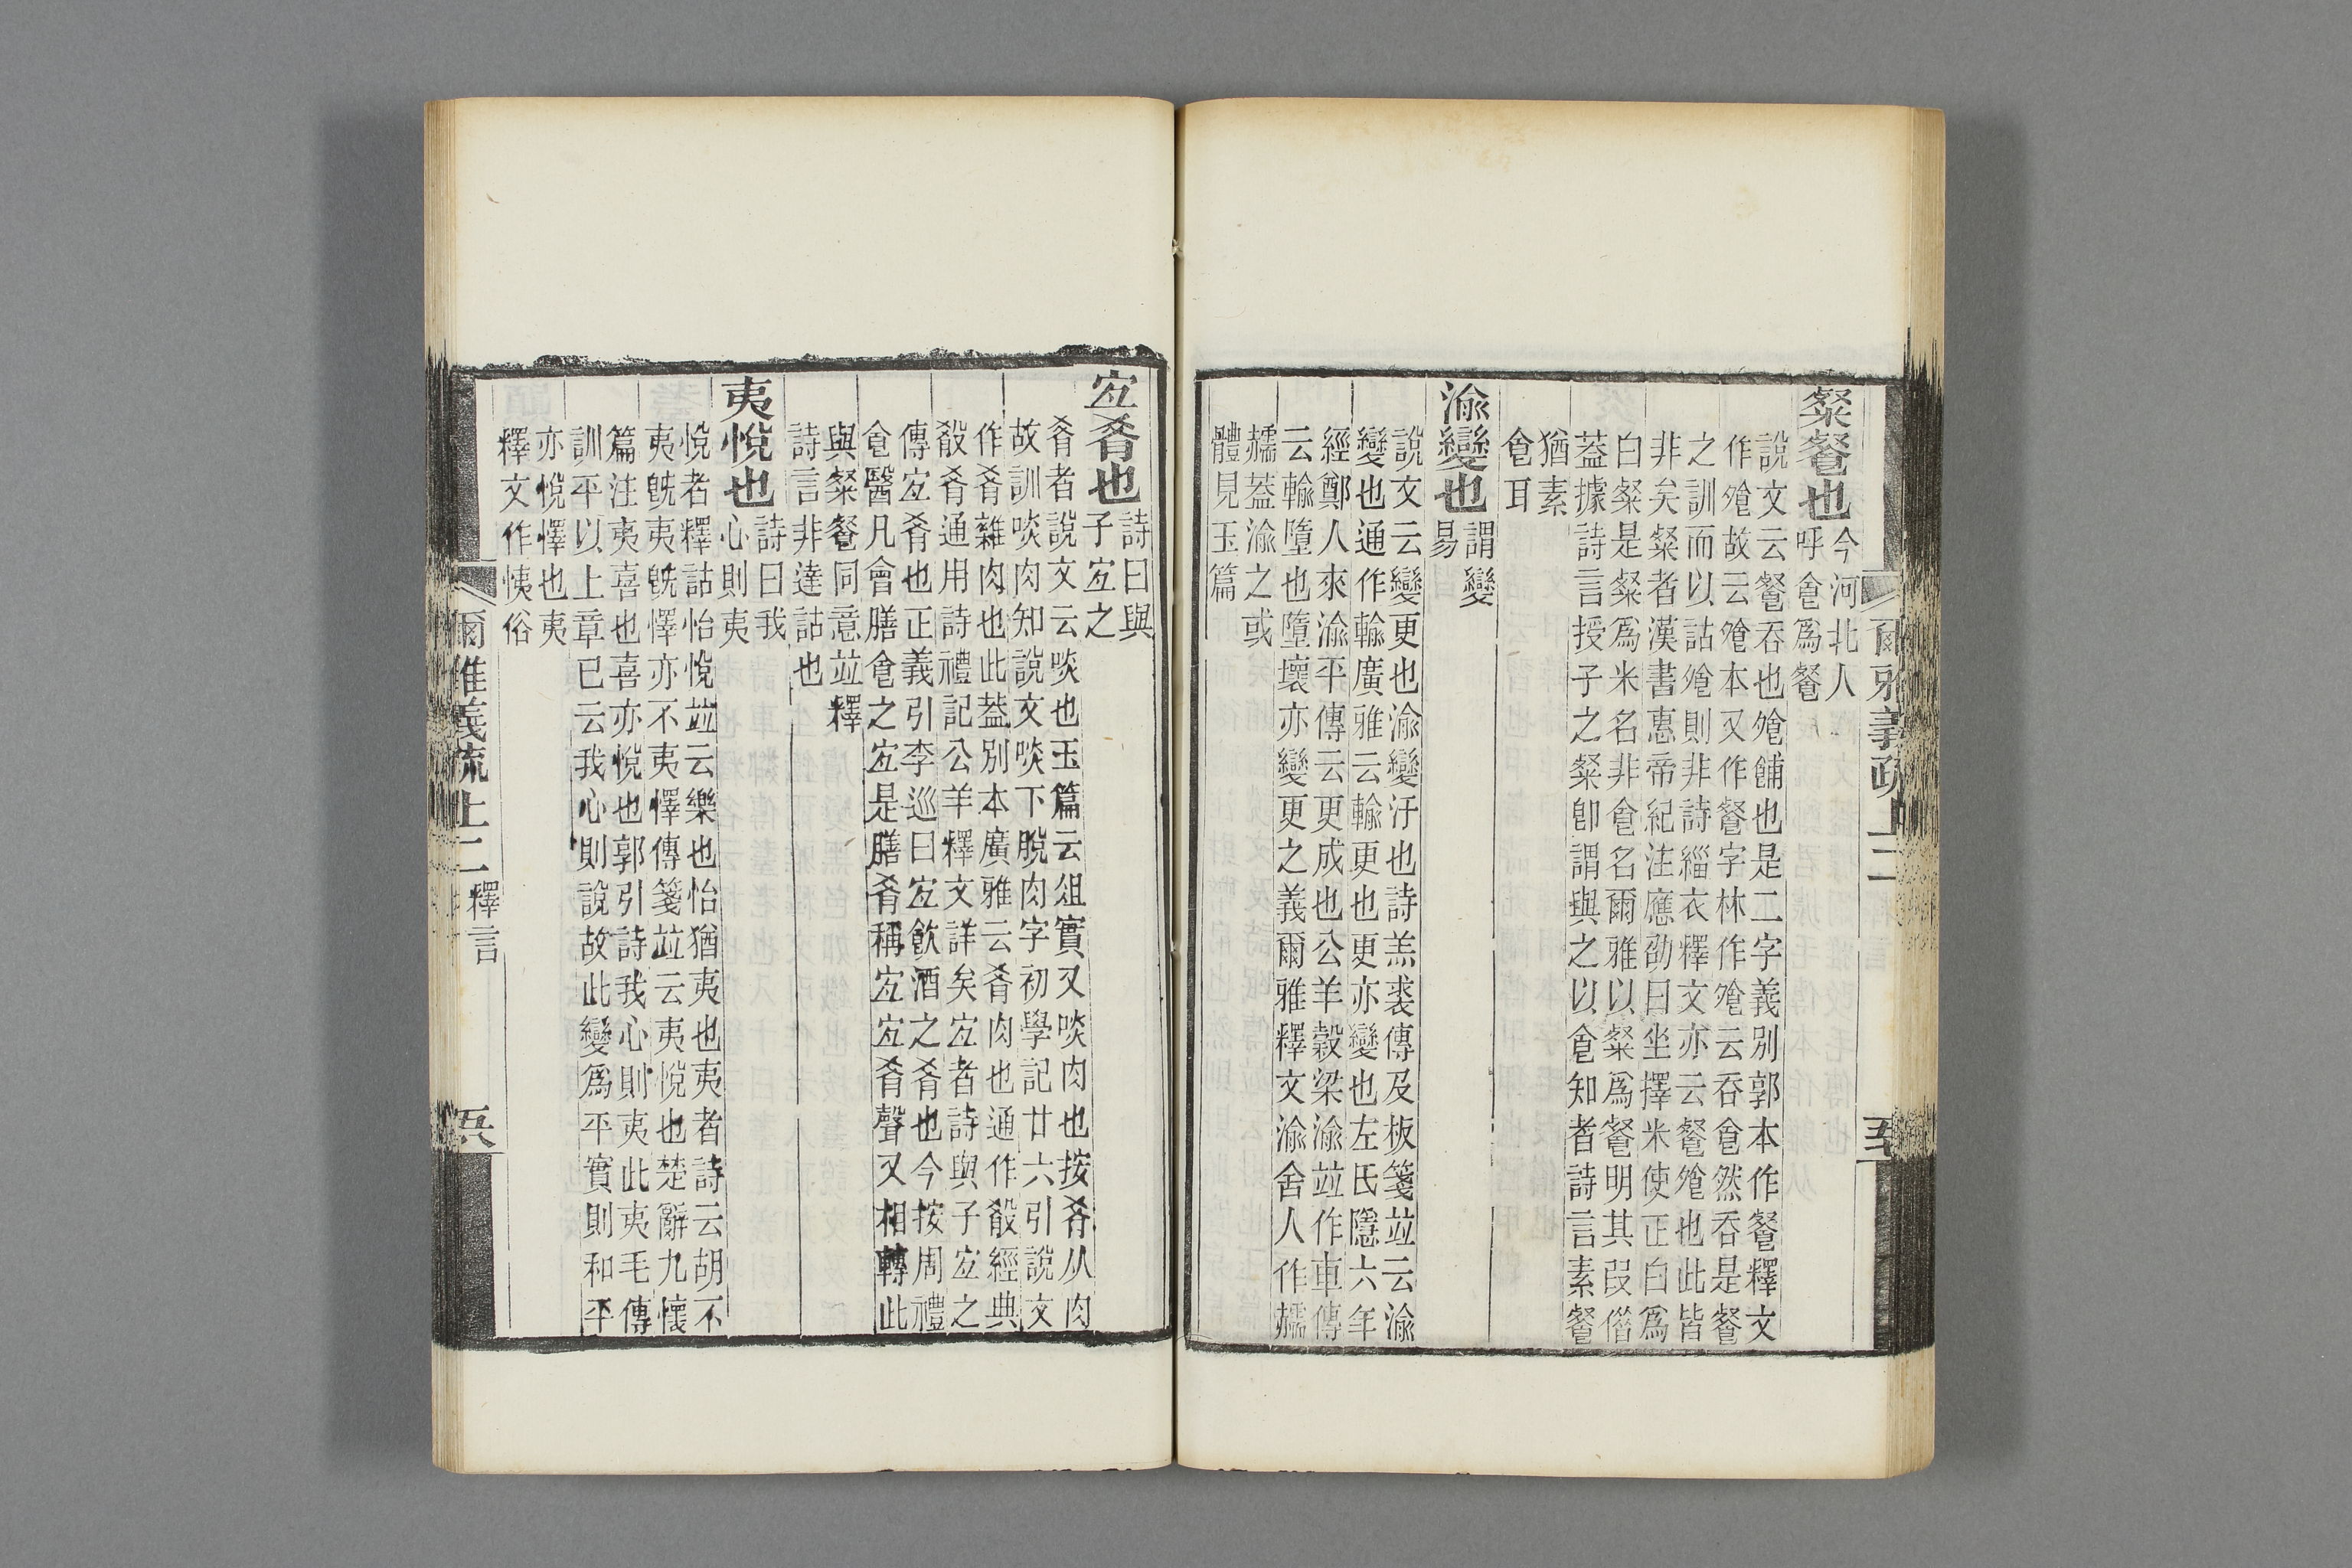 粲餐也今河北人
呼飡爲餐
說文云餐吞也飧餔也是二字義別郭本作餐釋文
作飧故云飧本又作餐字林作飧云吞食然吞是餐
之訓而以詁飧則非詩緇衣釋文亦云餐飧也此皆
非矣粲者漢書惠帝紀注應劭曰坐擇米使正白爲
白粲是粲爲米名非食名爾雅以粲爲餐明其叚借
蓋據詩言授子之粲卽謂與之以食知者詩言素餐
猶素
食耳
渝變也謂變
易
說文云變更也渝變汙也詩羔裘傳及板箋竝云渝
變也通作輸廣雅云輸更也更亦變也左氏隱六年
經鄭人來渝平傳云更成也公羊穀梁渝竝作車傳
云輸墮也墮壞亦變更之義爾雅釋文渝舍人作𧞀
𧞀蓋渝之或
體見玉篇
爾雅義疏上二
宐肴也詩曰與
子宐之
肴者說文云啖也玉篇云俎實又啖肉也按肴从肉
故訓啖肉知說文啖下脫肉字初學記廿六引說文
作肴雜肉也此蓋別本廣雅云肴肉也通作殽經典
殽肴通用詩禮記公羊釋文詳矣宐者詩與子宐之
傳宐肴也正義引李巡曰宐飲酒之肴也今按周禮
食醫凡會膳食之宐是膳肴稱宐宐肴聲又相轉此
與粲餐同意竝釋
詩言非達詁也
夷悅也詩曰我
心則夷
悅者釋詁怡悅竝云樂也怡猶夷也夷者詩云胡不
夷旣夷旣懌亦不夷懌傳箋竝云夷悅也楚辭九懷
篇注夷喜也喜亦悅也郭引詩我心則夷此夷毛傳
訓平以上章已云我心則說故此變爲平實則和平
亦悅懌也夷
釋文作恞俗
爾雅義疏上二 釋言